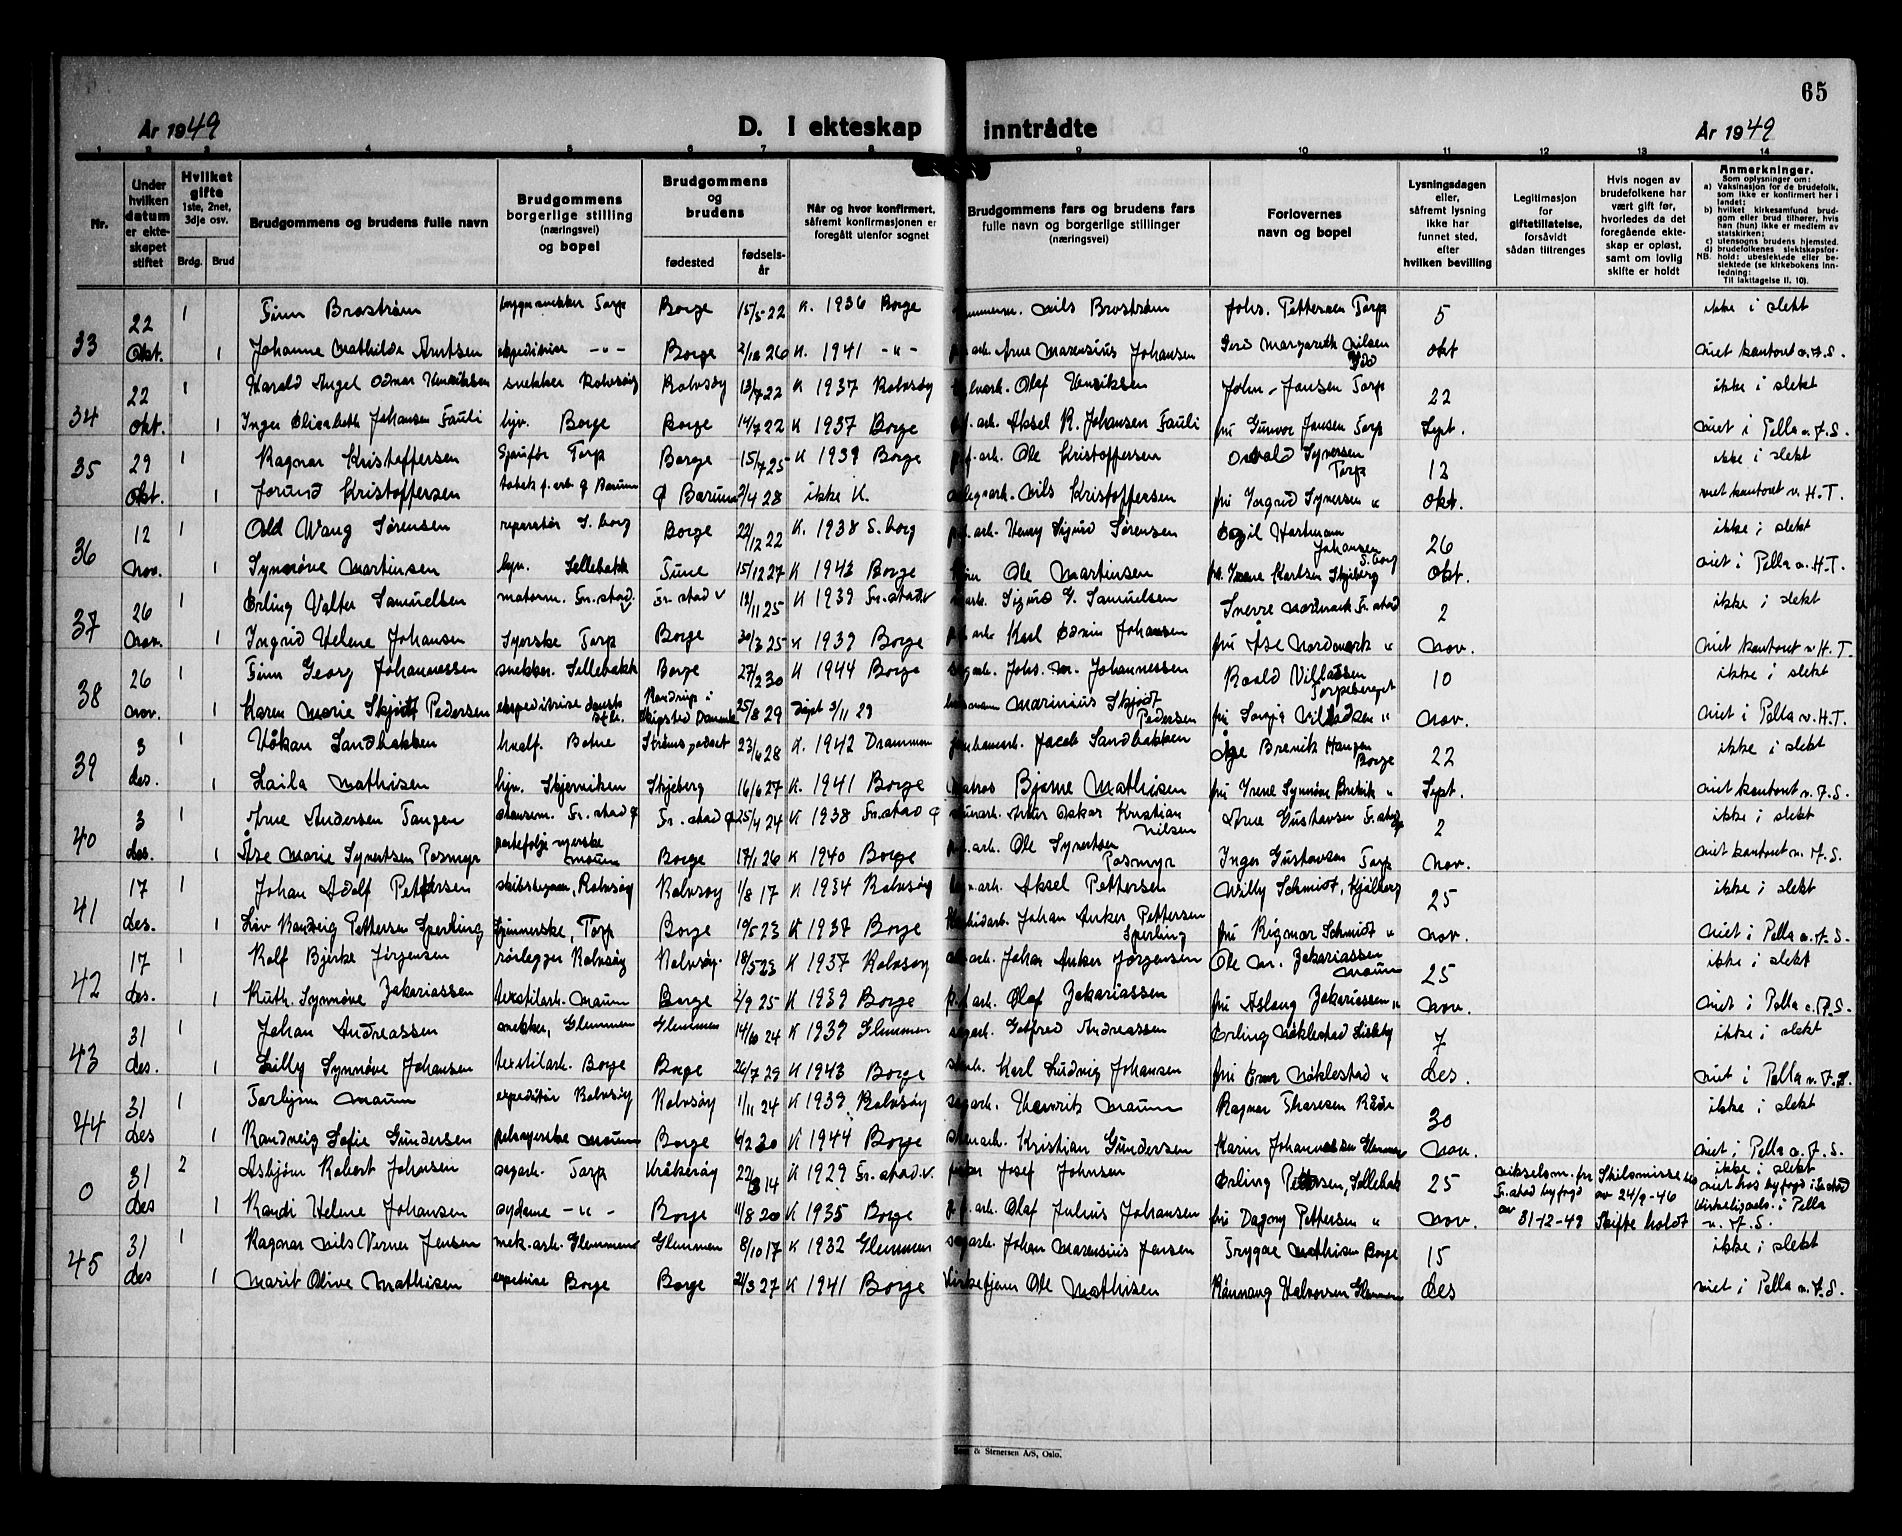 65
År 1949
D. I ekteskap inntrådte
År 1949
1 2 3 4 5 6 7 8 9 10 11 12 13 14
Nr.
Under hvilken datum er ekteskapet stiftet
Hvilket gifte 1ste, 2net, 3dje osv.
Brdg. Brud
Brudgommens og brudens fulle navn
Brudgommens borgerlige stilling (næringsvei) og bopel
Brudgommens og brudens
fødested
fødselsår
Når og hvor konfirmert, såfremt konfirmasjonen er foregått utenfor sognet
Brudgommens fars og brudens fars fulle navn og borgerlige stillinger (næringsvei)
Forlovernes navn og bopel
Lysningsdagen eller, såfremt lysning ikke har funnet sted, efter hvilken bevilling
Legitimasjon for giftetillatelse, forsåvidt sådan tiltrenges
Hvis nogen av brudefolkene har vært gift før, hvorledes da det foregående ekteskap er opløst, samt om lovlig skifte er holdt
Anmerkninger.
Som oplysninger om:
a) Vaksinasjon for de brudefolk, som ikke er konfirmert her i landet;
b) hvilket kirkesamfund brudgom eller brud tilhører, hvis han (hun) ikke er medlem av statskirken;
c) utensogns brudens hjemsted.
d) brudefolkenes slektskapsforhold: ubeslektede eller beslektede (se kirkebokens innledning:
NB. Til iakttagelse II. 10).
33 22 1 Finn Brostrøm Torp Borge 15/5-22 K. 1936 Borge Nils Brostrøm Johs. Pettersen Torp 5 ikke i slekt
Okt. 1 Johanne Mathilde Arntsen -"- Borge 2/12 26 K. 1941 -"- Arne Marensius Johansen Margareth Nilsen okt viet kontoret v. J.S.
34 22 1 Harald Angel Odmar Henriksen snekker Rolvsøy Rolvsøy 13/7 22 K 1937 Rolvsøy Olaf Henriksen John Jansen Torp 22 ikke i slekt
okt. 1 Inger Elisabeth Johansen Fauli hjv. Borge Borge 14/7 22 K 1937 Borge arb. Aksel R. Johansen Fauli fru Gunvor Jansen Torp Sept. viet i Pella v. J.S.
35 29 1 Ragnar Kristoffersen Sjåufør Torp Borge 15/7 25 K 1939 Borge arb. Ole Kristoffersen Synersen Torp 12 ikke i slekt
Okt. 1 Jorund Kristoffersen Ø Bærum 2/4 28 ikke K. Nils Kristoffersen fru Ingrid Synersen " okt. viet kontoret v. H.T.
36 12 1 Odd Wang Sørensen reparatør S.borg Borge 22/12 22 K. 1938 S.borg arb. Henry Sigurd Sørensen Egil Hartmann Johansen S.borg 26 ikke i slekt
Nov. 1 Synnøve Martinsen hjv. Sellebakk Tune 15/12 27 K 1943 Borge Ole Martinsen Karlsen Skjeberg Okt. viet i Pella v. H.T.
37 26 1 Erling Valter Samuelsen Fr.stad v Fr.stad v 12/11 25 K 1939 Fr.stad.v Sigurd G. Samuelsen Sverre Nordmark Fr.stad 2 ikke i slekt
Nov. 1 Ingrid Helene Johansen Syerske Torp Borge 30/3 25 K 1939 Borge arb. Karl Edvin Johansen fru Åse Nordmark " Nov. viet kontoret v. H.T.
38 26 1 Finn Georg Johannessen snekker Sellebakk Borge 27/2 30 K 1944 Borge Johs. M. Johannessen Roald Villadsen Torpeberget 10 ikke i slekt
Nov. 1 Karen Marie Skjødt Pedersen ekspeditrise dansk Danmark 25/8 29 døpt 3/11 29 Marinius Skjødt Pedersen fru Sonja Villadsen " Nov. viet i Pella v. H.T.
39 3 1 Håkan Sandbakken Strømsgodset 23/6 28 K. 1942 Drammen Jacob Sandbakken Åge Brevik Hansen Borge 22 ikke i slekt
des. 1 Laila Mathisen hjv. Skjærviken Skjeberg 16/6 27 K. 1941 Borge Matros Bjarne Mathisen fru Irene Synnøve Brevik " Sept. viet kontoret v. J.S.
40 3 1 Arne Andersen Tangen Fr.stad Ø Fr.stad Ø 25/4 24 K 1938 Fr.stad Ø Oskar Kristian Nilsen Arne Gustavsen Fr.stad 2 ikke i slekt
des. 1 Åse Marie Synertsen Posmyr portefølje syerske Moum Borge 17/1 26 K 1940 Borge arb. Ole Synertsen Posmyr Inger Gustavsen Torp Nov. viet kontoret v. J.S.
41 17 1 Johan Adolf Pettersen Rolvsøy Rolvsøy 1/8 17 K 1934 Rolvsøy Aksel Pettersen Willy Schmidt, Kjølberg 25 ikke i slekt
des. 1 Liv Randveig Pettersen Sperling Spinnerske, Torp Borge 19/5 23 K 1937 Borge Johan Anker Pettersen Sperling fru Rigmor Schmidt " Nov. viet i Pella v. J.S.
42 17 1 Rolf Bjerke Jørgensen rørlegger Rolvsøy Rolvsøy 18/5 23 K 1937 Rolvsøy Johan Anker Jørgensen Ole M. Zakariassen Moum 25 ikke i slekt
des. 1 Ruth Synnøve Zakariassen textilarb. Moum Borge 2/9 25 K 1939 Borge arb. Olaf Zakariassen fru Aslaug Zakariassen " Nov. viet i Pella v. J.S.
43 31 1 Johan Andreassen snekker, Glemmen Glemmen 14/6 24 K 1939 Glemmen Gotfred Andreassen Erling Nøklestad 7 ikke i slekt
des. 1 Lilly Synnøve Johansen textilarb. Borge Borge 26/7 29 K 1943 Borge Karl Ludvig Johansen fru Nøklestad " des. viet i Pella v. J.S.
44 31 1 Torbjørn Moum ekspeditør Rolvsøy Rolvsøy 1/11 24 K 1939 Rolvsøy Henrik Moum Ragnar Thoresen Råde 30 ikke i slekt
des 1 Randveig Sofie Gundersen Moum Borge K 1944 Borge Kristian Gundersen Karin Johannessen Glemmen Nov. viet i Pella v. J.S.
0 31 2 Asbjørn Robert Johnsen Torp Kråkerøy 22/3 14 K 1929 Fr.stad.v. Josef Johnsen Erling Pettersen, Sellebakk 25 Fr.stad byfogd Skilsmisse av 24/9-46 ikke i slekt viet hos byfogd i Fr.stad
des 1 Randi Helene Johansen -"- Borge 11/8 20 K 1935 Borge arb. Olaf Julius Johansen fru Dagny Pettersen " Nov. av 31-12-49 Skifte holdt i Pella v. J.S.
45 31 1 Ragnar Nils Verner Jensen mek.arb. Glemmen Glemmen 8/10 17 K 1932 Glemmen Johan Marensius Jensen Trygve Mathisen Borge 15 ikke i slekt
des 1 Marit Olive Mathisen Borge Borge 21/3 27 K 1941 Borge Kirketjener Ole Mathisen Halvorsen Glemmen des viet i Pella v. J.S.
& Stenersen A/S, Oslo.